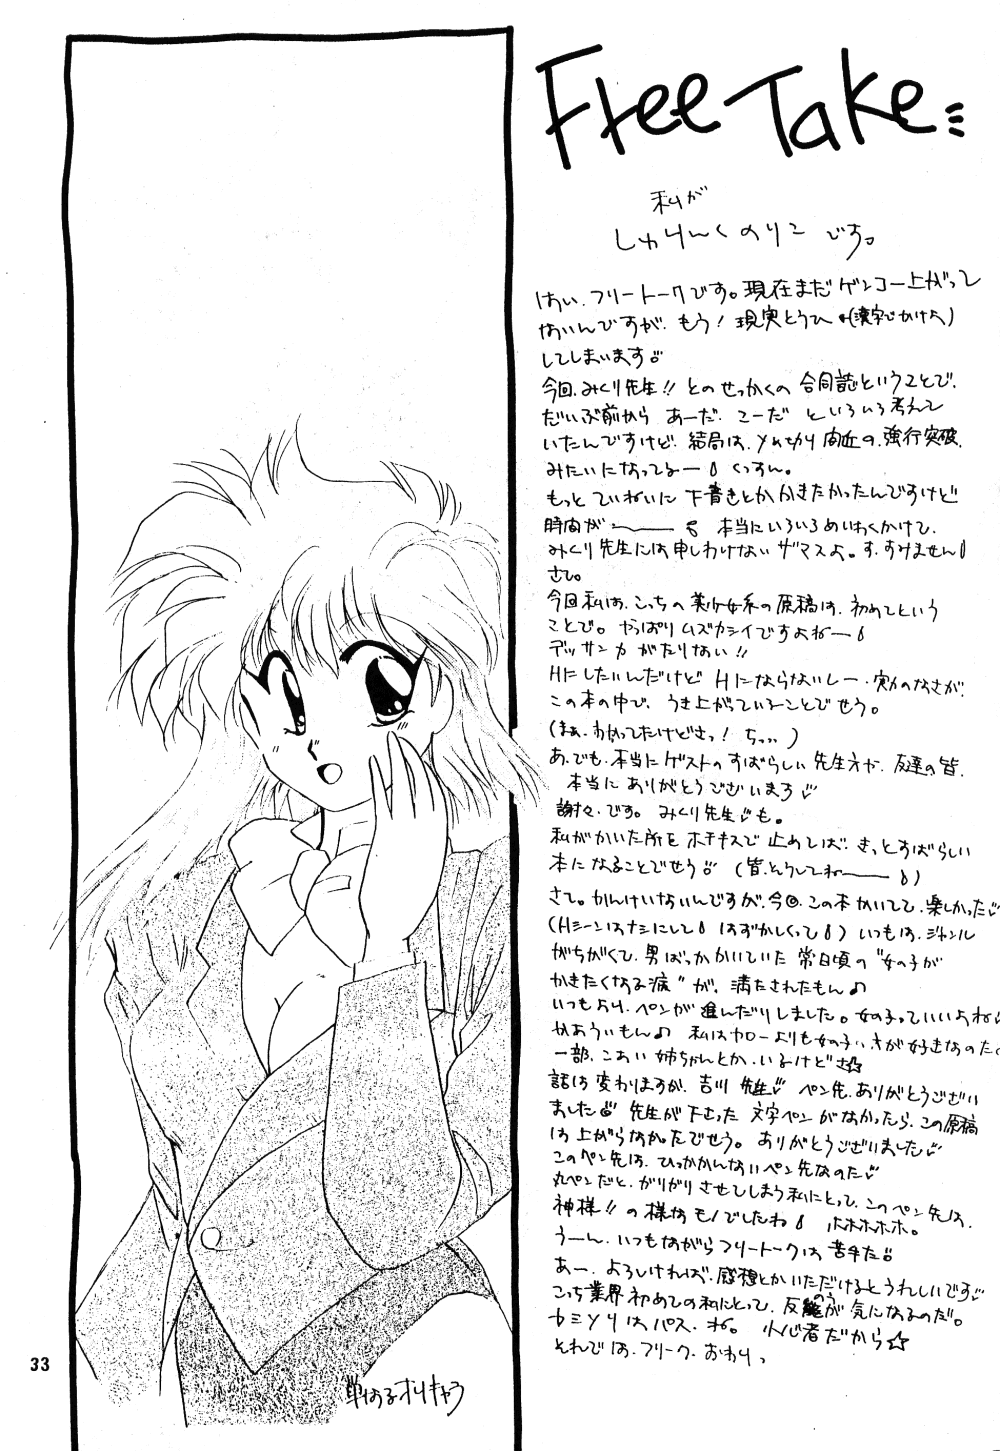 Free Take
私が
しゅりんく のりこ です。
はい、フリートークです。現在まだゲンコー上がって
ないんですが、もう!現実とうひ(漢字でかけよ)
してしまいます
今回、みくり先生!!とのせっかくの合同誌ということで、
だいぶ前から あーだ、こーだ といろいろ考えて
いたんですけど、結局は、〆切り間近の、強行突破、
みたいになってるー くっすん。
もっとていねいに下書きとかかきたかったんですけど
時間がー 本当にいろいろめいわくかけて、
みくり先生には申しわけないザマスよ。す、すみません
さて。
今回私は、こっちの美少女系の原稿は、初めてという
ことで。やっぱりムズカシイですよねー
デッサン力がたりない!!
Hにしたいんだけど Hにならないしー、実力のなさが、
この本の中で、うき上がっていることでせう。
(まぁ、わかってたけどさっ!ちっ…)
あ、でも、本当にゲストのすばらしい先生方や、友達の皆、
本当にありがとうございます
謝々、です。みくり先生も。
私がかいた所をホチキスで止めてしば、きっとすばらしい
本になることでせう (皆、そうしてねー)
さて。かんけいないんですが、今回、この本かいてて、楽しかった
(HシーンはナシにしてはずかしくってI) いつもは、ジャンル
がちがくて、男ばっかかいていた常日頃の"女の子が
かきたくなる病"が、満たされたもん♪
いつもより、ペンが進んだりしました。女の子っていいよね
かあういもん♪ 私はヤローよりも女の子の方が好きなのた
一部、こあい姉ちゃんとか、いるけどさ☆
話は変わりますが、吉川先生 ペン先、ありがとうござい
ました 先生が下さった文字ペンがなかったら、この原稿
は上がらなかったでせう。ありがとうございました
このペン先は、ひっかかんないペン先なのた
丸ペンだと、がりがりさせてしまう私にとって、このペン先は、
神様!!の様なモノでしたわ ホホホホホ。
うーん、いつもながらフリートークは苦手だ
あー、よろしければ、感想とかいただけるとうれしいです
こっち業界初めての私にとって、反応が気になるのだ。
カミソリはパス、ね。小心者だから☆
それでは、フリーク、おわりっ
単なるオリキャラ
33